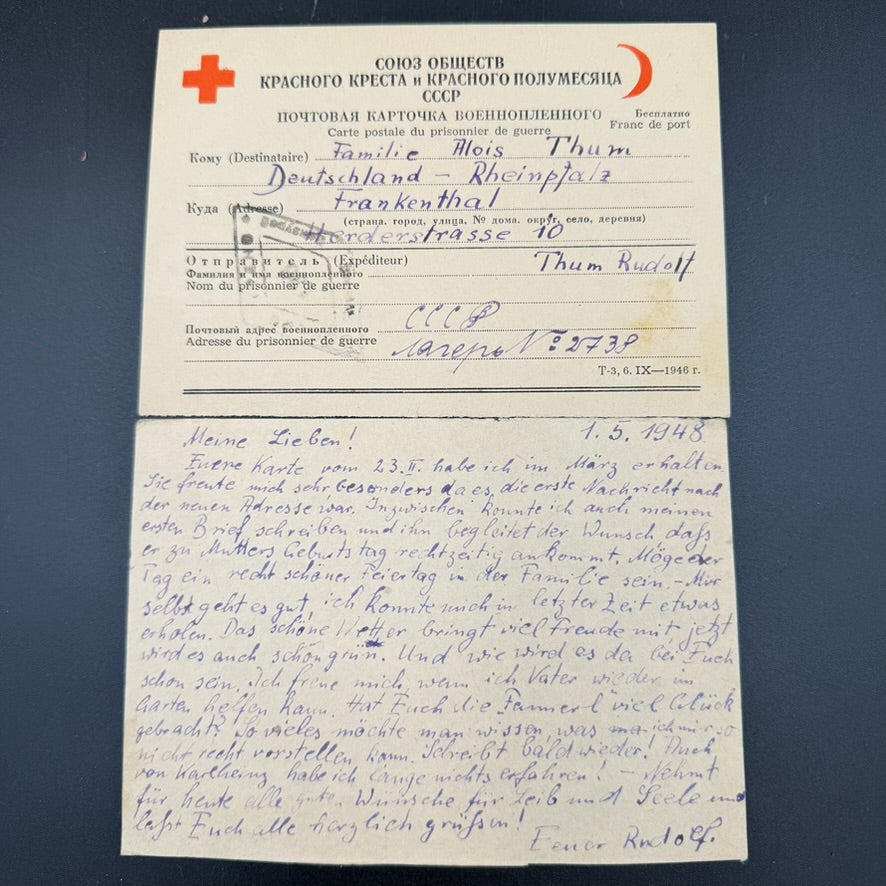 СОЮЗ ОБЩЕСТВ
КРАСНОГО КРЕСТА и КРАСНОГО ПОЛУМЕСЯЦА
СССР
ПОЧТОВАЯ КАРТОЧКА ВОЕННОПЛЕННОГО
Carte postale du prisonnier de guerre
Бесплатно
Franc de port
Кому (Destinataire) Familie Alois Thum
Deutschland - Rheinpfalz
Куда (Adresse) Frankenthal
(страна, город, улица, № дома, округ, село, деревня)
Herderstrasse 10
Отправитель (Expéditeur) Thum Rudolf
Фамилия и имя военнопленного
Nom du prisonnier de guerre
Почтовый адрес военнопленного СССР
Adresse du prisonnier de guerre Лагерь № 2738
Т-3, 6. IX—1946 г.
Meine Lieben! 1.5.1948
Euere Karte vom 23.II. habe ich im März erhalten.
Sie freute mich sehr, besonders da es, die erste Nachricht nach
der neuen Adresse war. Inzwischen konnte ich auch meinen
ersten Brief schreiben und ihn begleitet der Wunsch, daß
er zu Mutters Geburtstag rechtzeitig ankommt. Möge der
Tag ein recht schöner Feiertag in der Familie sein. - Mir
selbst geht es gut, ich konnte mich in letzter Zeit etwas
erholen. Das schöne Wetter bringt viel Freude mit, jetzt
wird es auch schön grün. Und wie wird es da bei Euch
schon sein. Ich freue mich, wenn ich Vater wieder im
Garten helfen kann. Hat Euch die viel Glück
gebracht? So vieles möchte man wissen, was ich mir so
nicht recht vorstellen kann. Schreibt bald wieder! Auch
von Karlheinz habe ich lange nichts erfahren! - Nehmt
für heute alle guten Wünsche für Leib und Seele und
laßt Euch alle herzlich grüßen!
Euer Rudolf.